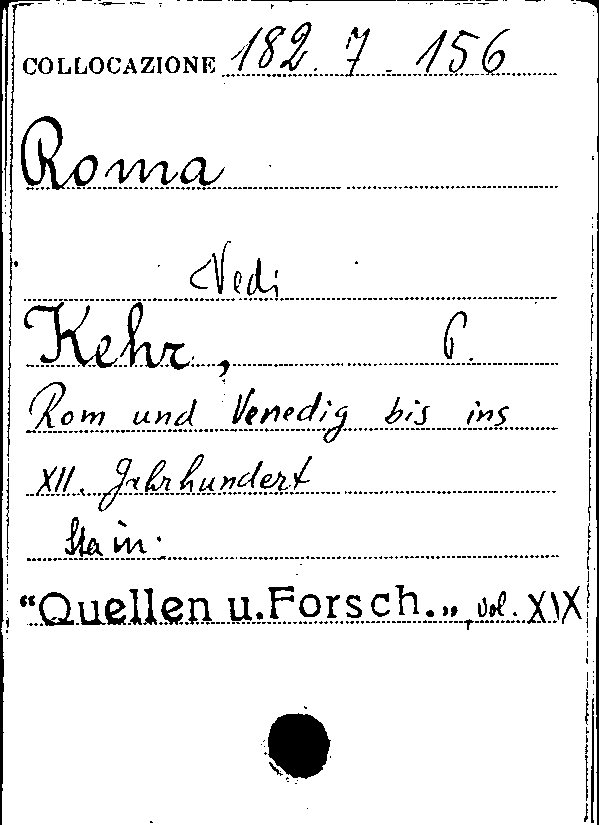 COLLOCAZIONE 182. 7 - 156
Roma
Vedi
Kehr, P.
Rom und Venedig bis ins
XII. Jahrhundert
Sta in:
“Quellen u. Forsch.„, vol. XIX